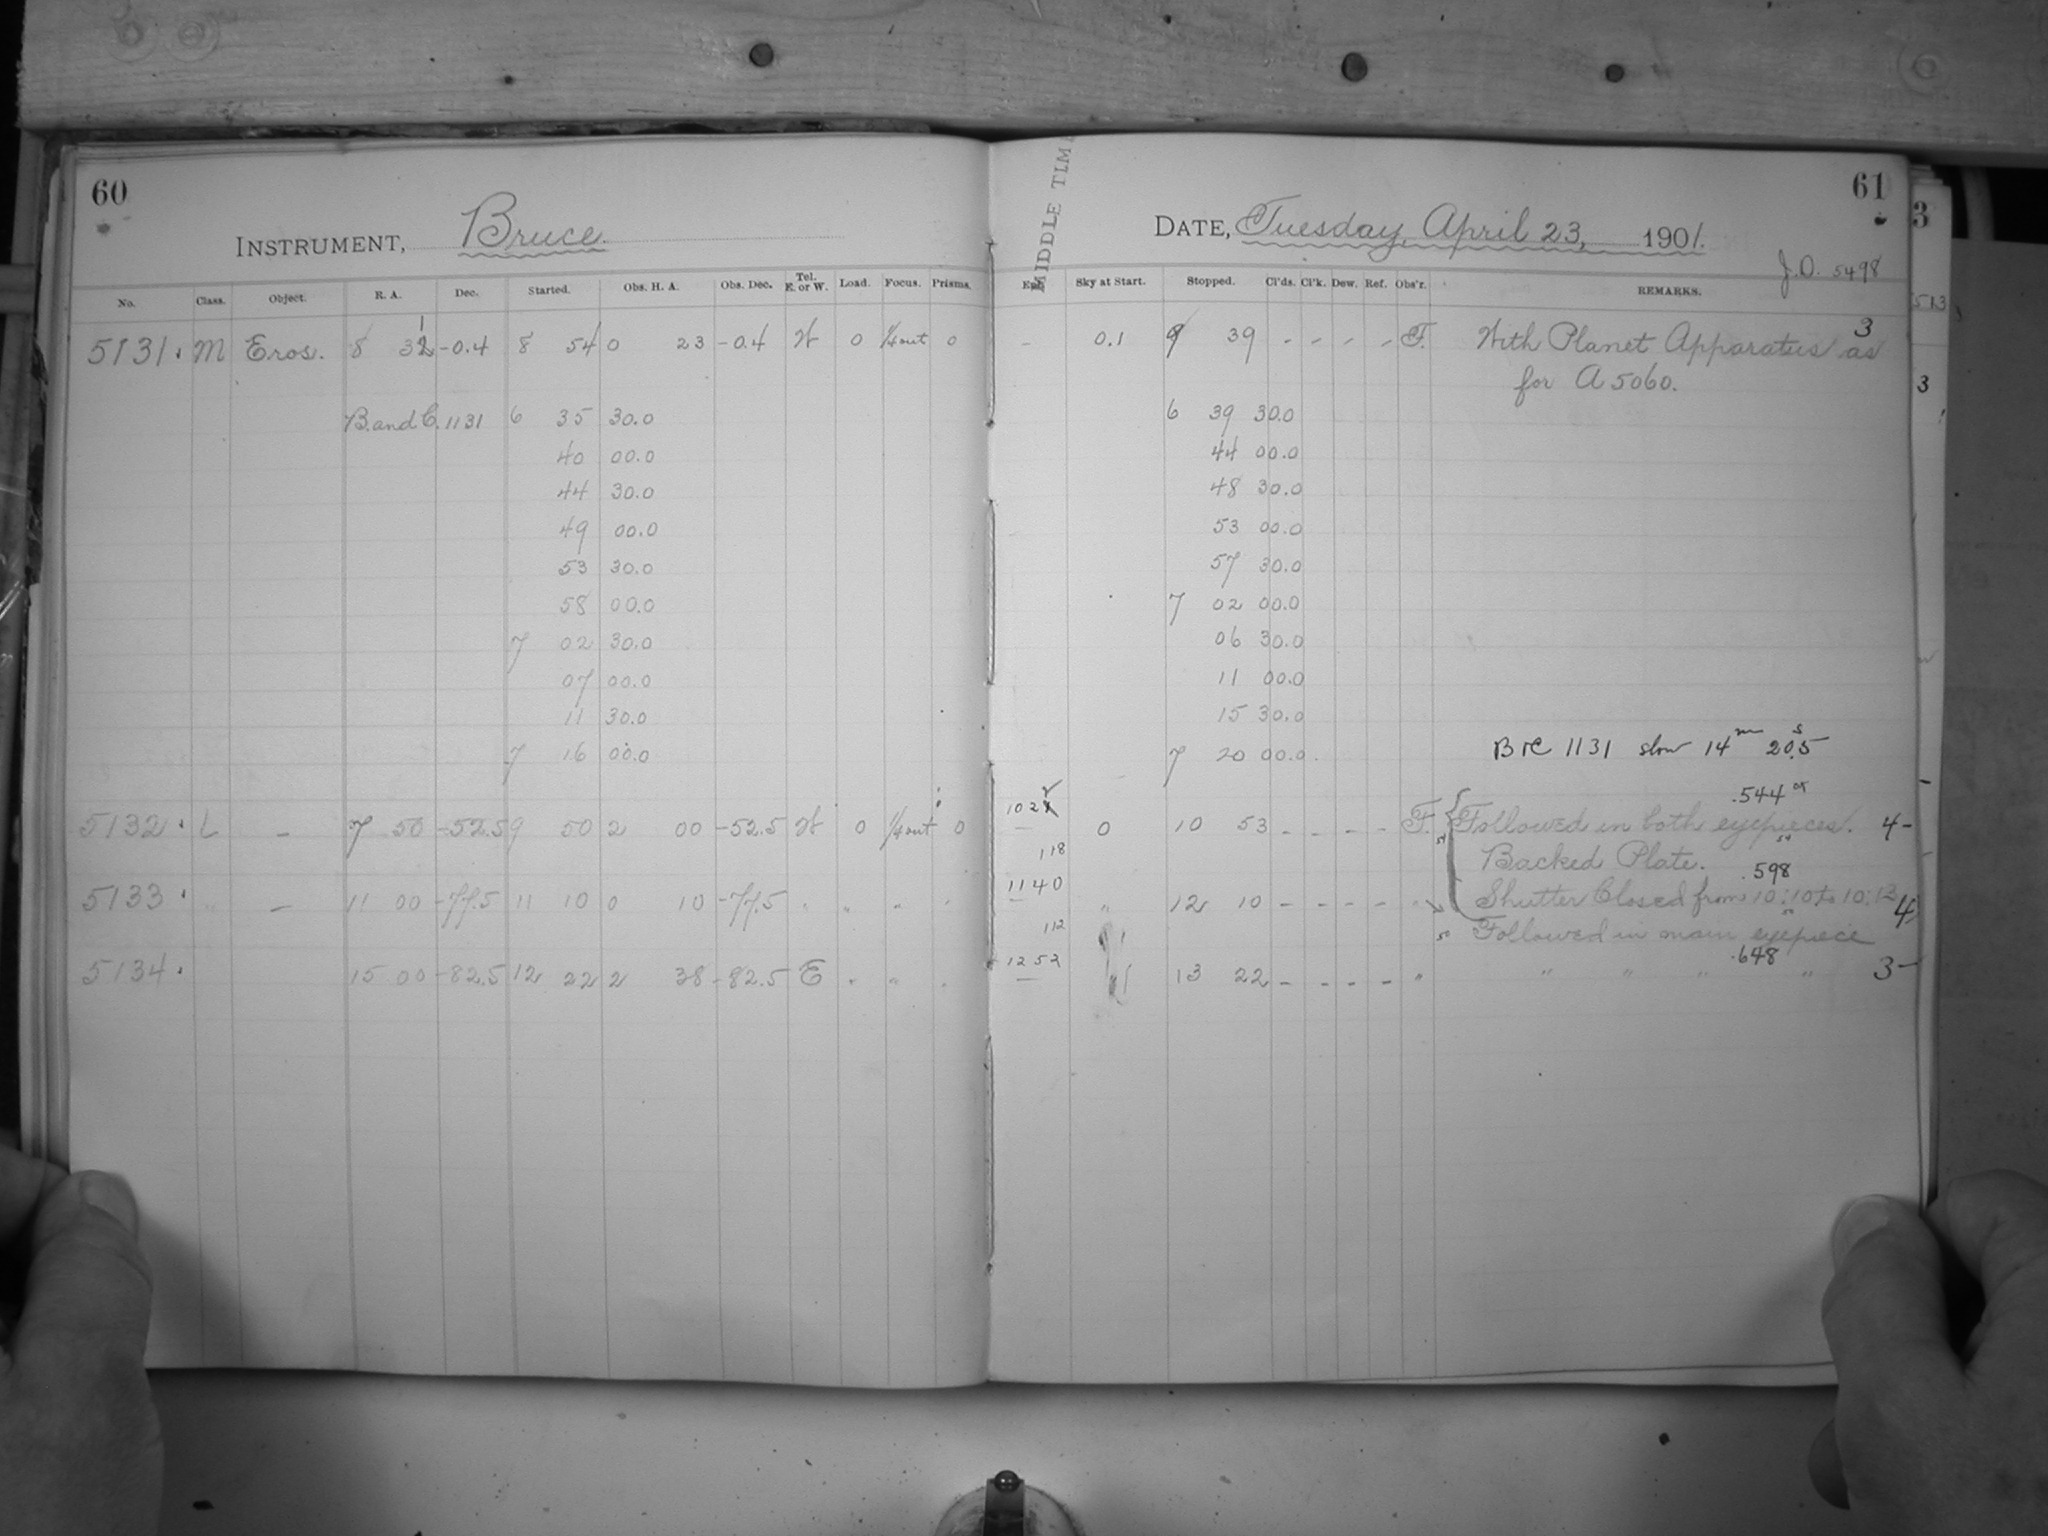 60
INSTRUMENT, Bruce.
No. Class. Object. R. A. Dec. Started. Obs. H. A. Obs. Dec. Tel. E. or W. Load. Focus. Prisms.
5131. M Eros. 8 31 -0.4 8 54 0 23 -0.4 W 0 1/4 out 0
B. and C. 1131 6 35 30.0
40 00.0
44 30.0
49 00.0
53 30.0
58 00.0
7 02 30.0
07 00.0
11 30.0
7 16 00.0
5132. L - 7 50 -52.5 9 50 2 00 -52.5 W 0 1/4 out 0
5133. " - 11 00 -77.5 11 10 0 10 -77.5 " " " "
5134. 15 00 -82.5 12 22 2 38 -82.5 E " " "
61
MIDDLE TIM
DATE, Tuesday, April 23, 1901.
J.D. 5498
Sky at Start. Stopped. Cl'ds. Cl'k. Dew. Ref. Obs'r. REMARKS.
- 0.1 9 39 - - - - F. With Planet Apparatus as 3
for A 5060.
6 39 30.0
44 00.0
48 30.0
53 00.0
57 30.0
7 02 00.0
06 30.0
11 00.0
15 30.0
7 20 00.0
B & C 1131 slow 14m 20s.5
.544
1022 0 10 53 - - - - F. Followed in both eyepieces. 4-
118 Backed Plate. .598
1140 " 12 10 - - - - " Shutter Closed from 10:10 to 10:13 4
112 Followed in main eyepiece
.648
1252 " 13 22 - - - - " " " " " 3-
3
513
3